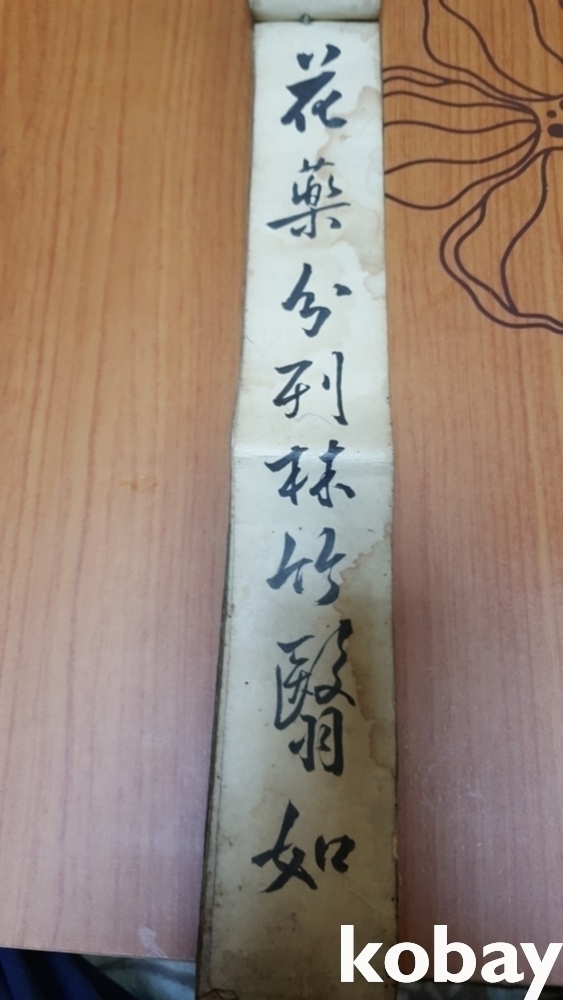 花藥分列林竹翳如
kobay